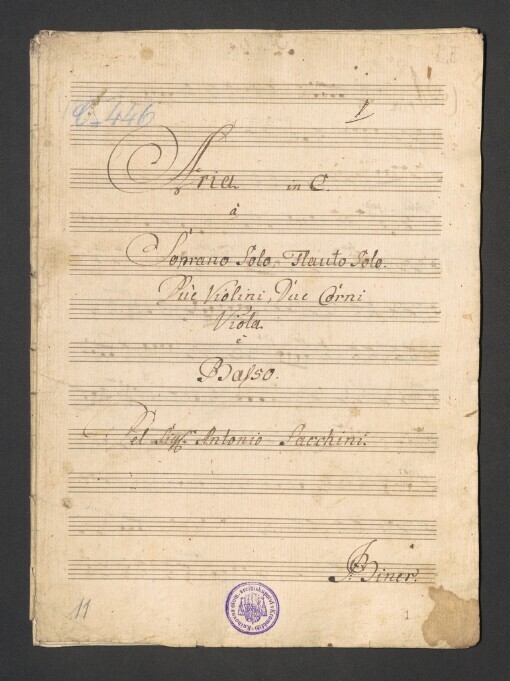 C. 446
1
Aria in C.
à
Soprano Solo, Flauto Solo.
Due Violini, Due Corni
Viola.
è
Basso.
Del Sigr. Antonio Sacchini.
Biner.
11
1